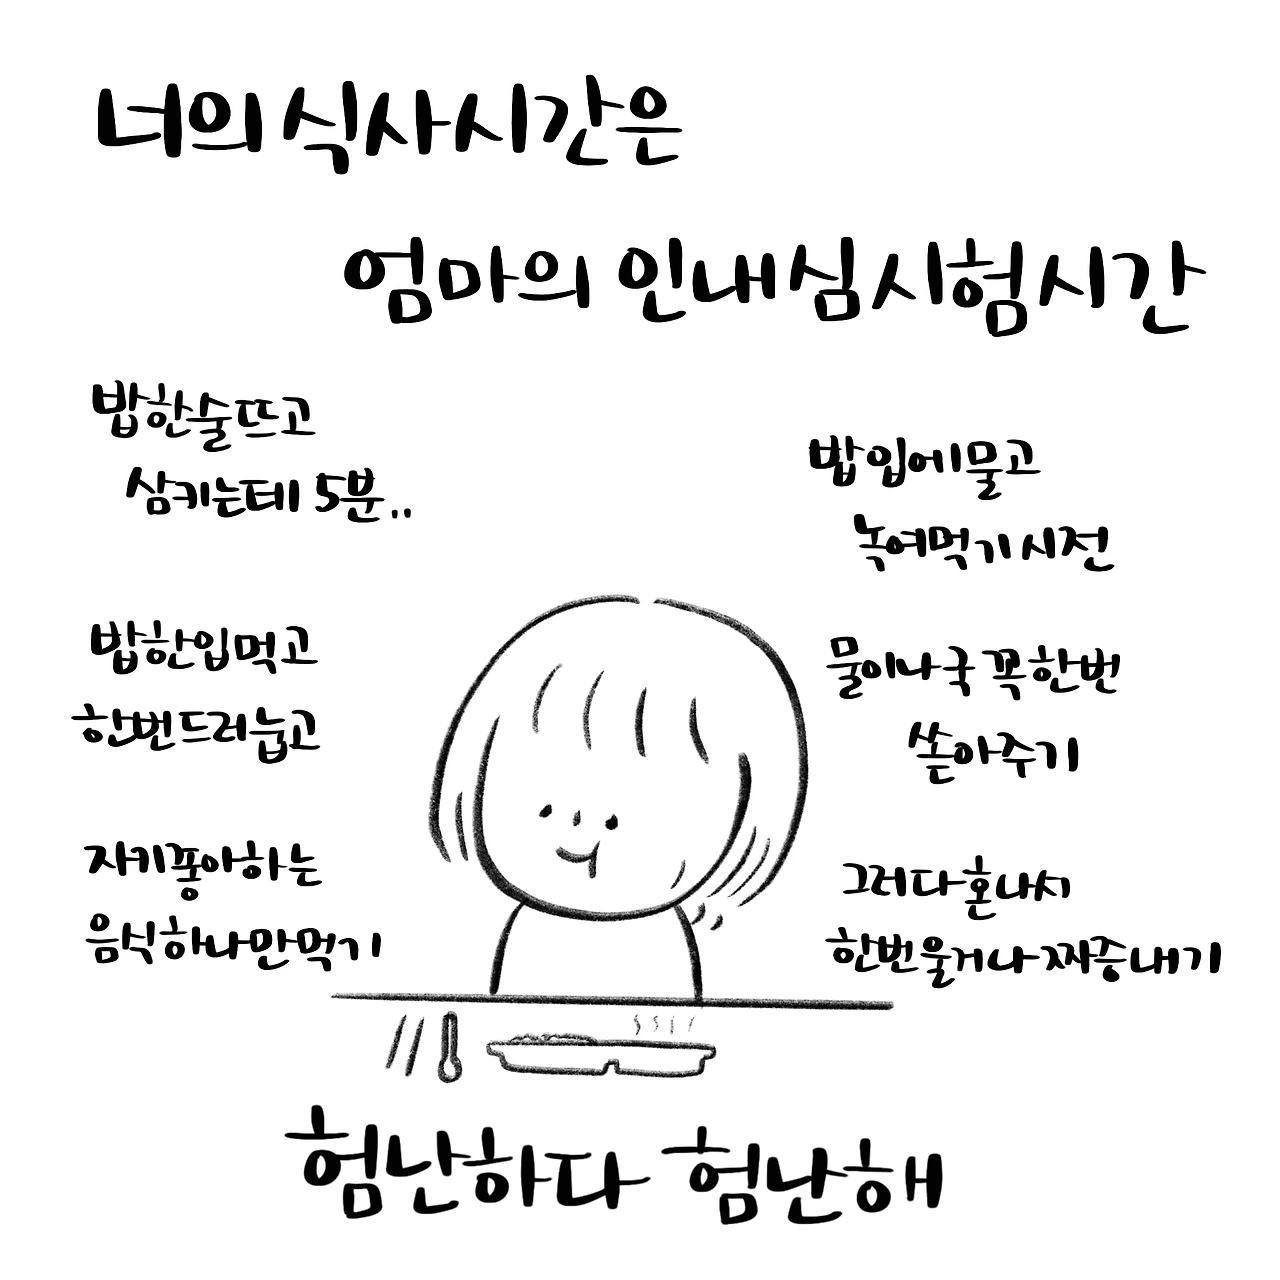 너의 식사시간은
엄마의 인내심 시험시간
밥한술뜨고
삼키는데 5분..
밥한입먹고
한번드러눕고
자키좋아하는
음식하나만먹기
밥 입에물고
녹여먹기 시전
물이나 국 꼭 한번
쏟아주기
그러다 혼나서
한번울거나 짜증내기
험난하다 험난해